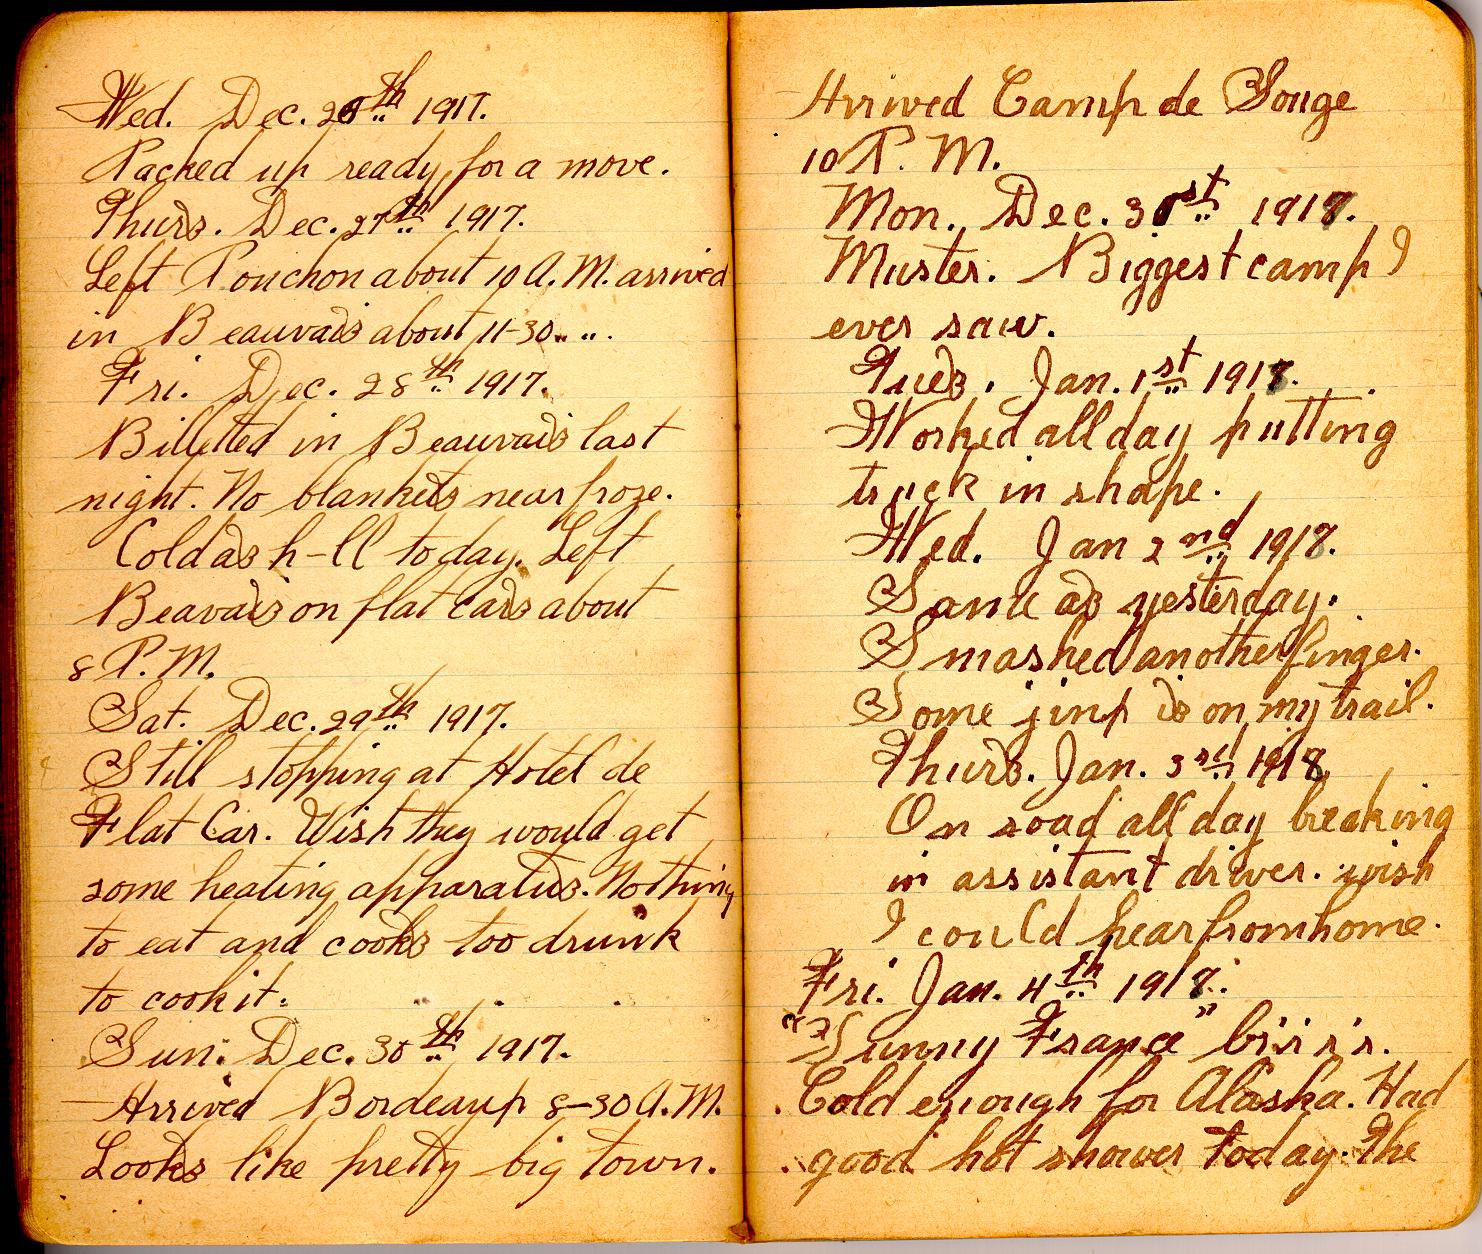 Wed. Dec. 26th 1917.
Packed up ready for a move.
Thurs. Dec. 27th 1917.
Left Pouchon about 10 A.M. arrived
in Beauvais about 11-30 " ".
Fri. Dec. 28th 1917.
Billetted in Beauvais last
night. No blankets near froze.
Cold as h-ll today. Left
Beavais on flat cars about
8 P.M.
Sat. Dec. 29th 1917.
Still stopping at Hotel de
Flat Car. Wish they would get
some heating apparatus. Nothing
to eat and cooks too drunk
to cook it.
Sun. Dec. 30th 1917.
Arrived Bordeaux 8-30 A.M.
Looks like pretty big town.
Arrived Camp de Souge
10 P.M.
Mon. Dec. 31st 1918.
Muster. Biggest camp I
ever saw.
Tues. Jan. 1st 1918.
Worked all day putting
truck in shape.
Wed. Jan 2nd 1918.
Same as yesterday.
Smashed another finger.
Some jinx is on my trail.
Thurs. Jan. 3rd 1918
On road all day breaking
in assistant driver. wish
I could hear from home.
Fri. Jan. 4th 1918.
"Sunny France" br'r'r'r.
Cold enough for Alaska. Had
good hot shower today. The